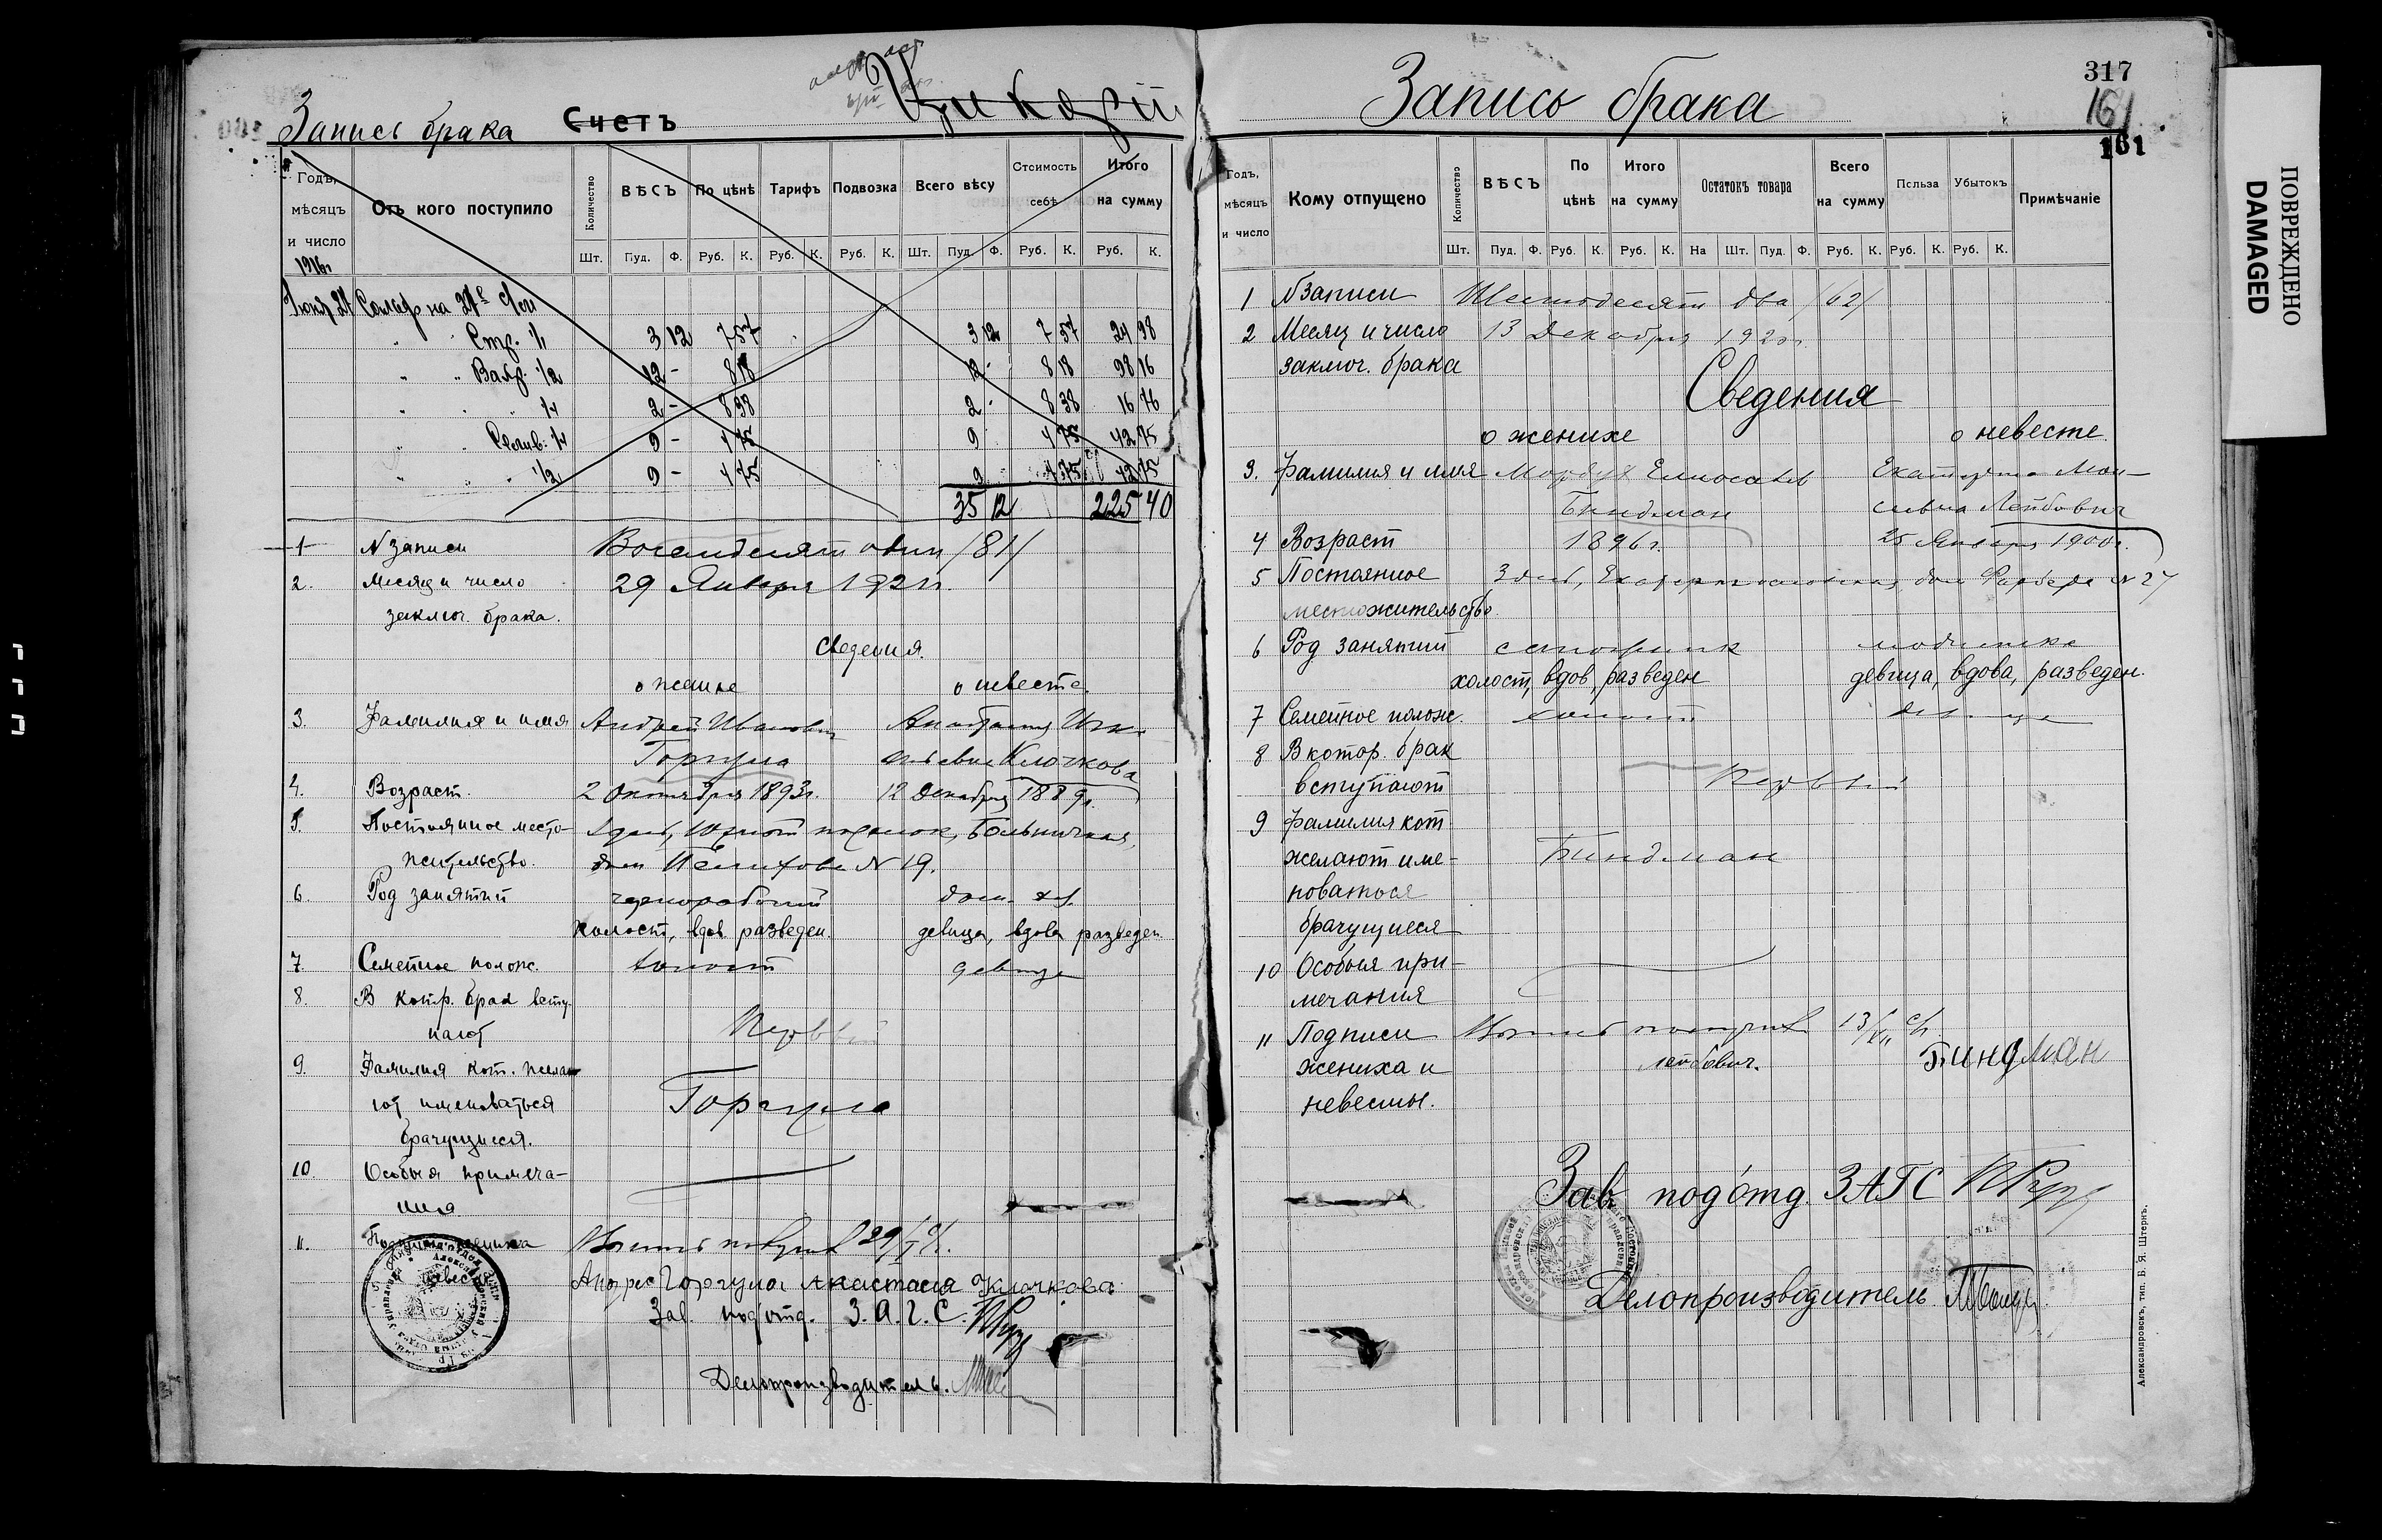 Запись брака
Счетъ
Цикорій
Годъ, мѣсяцъ и число
Отъ кого поступило
Количество
ВѢСЪ
По цѣнѣ
Тарифъ
Подвозка
Всего вѣсу
Стоимость себѣ
Итого на сумму
Шт. Пуд. Ф. Руб. К. Руб. К. Руб. К. Шт. Пуд. Ф. Руб. К. Руб. К.
1916г
на
3 12 7 57 3 12 7 57 24 98
12 - 8 18 12 - 8 18 98 16
2 - 8 38 2 - 8 38 16 76
9 - 4 75 9 4 75 42 75
9 - 4 75 9 4 75 42 75
35 12 225 40
1 N записи Восемдесят один /81/
2. Месяц и число 29 Января 1921г.
заключ. брака.
Сведения.
о женихе о невесте.
3. Фамилия и имя Андрей Иванович Анастасия
Горгула Клочкова
4. Возраст. 2 Октября 1893г. 12 Декабря 1889г.
5. Постоянное место- здесь, Южный поселок, Больничная,
жительство. дом N 19.
6. Род занятий чернорабочий дом. хоз.
холост, вдов разведен. девица, вдова разведен.
7. Семейное полож. холост девица
8. В котор. брак всту-
пают Первый
9. Фамилия кот. жела-
ют именоваться Горгула
брачущиеся.
10. Особыя примеча-
ния
11. жениха Выпись получил 29/I с/г.
Андрес Горгула Анастасия Клочкова
Зав. под'отд. З.А.Г.С.
Делопроизводитель.
Запись брака
317
161
161
Годъ, мѣсяцъ и число
Кому отпущено
Количество
ВѢСЪ
По цѣнѣ
Итого на сумму
Остатокъ товара
Всего на сумму
Польза
Убытокъ
Примѣчаніе
Шт. Пуд. Ф. Руб. К. Руб. К. На Шт. Пуд. Ф. Руб. К. Руб. К. Руб. К.
1 N записи Шестьдесят два /62/
2 Месяц и число 13 Декабря 192
заключ. брака
Сведения
о женихе о невесте.
3. Фамилия и имя Мордух Екатерина Мои-
Биндман сеевна Лейбович
4 Возраст 1896г. 25 Января 1900г.
5 Постоянное Здесь, Екатерининская, дом Фарбера N 27
местожительство.
6 Род занятий сапожник модистка
холост, вдов, разведен девица, вдова, разведен.
7 Семейное полож. холост девица
8 В котор. брак
вступают Первый
9 Фамилия кот
желают име- Биндман
новаться
брачущиеся
10 Особыя при-
мечания
11 Подписи Выпись получил 13/XII с/г.
жениха и Лейбович. Биндман
невесты.
Зав под'отд. ЗАГС
Делопроизводитель
Александровскъ, тип. Б. Я. Штернъ.
ПОВРЕЖДЕНО
DAMAGED